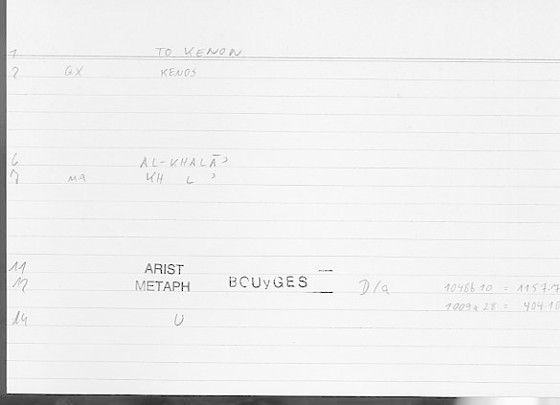 1 TO KENON
2 QX KENOS
6 AL-KHALĀʾ
7 MA KH L ʾ
11 ARIST
12 METAPH BOUyGES D/a 1048b10 = 1157.7
1009a28 = 404.10
14 U